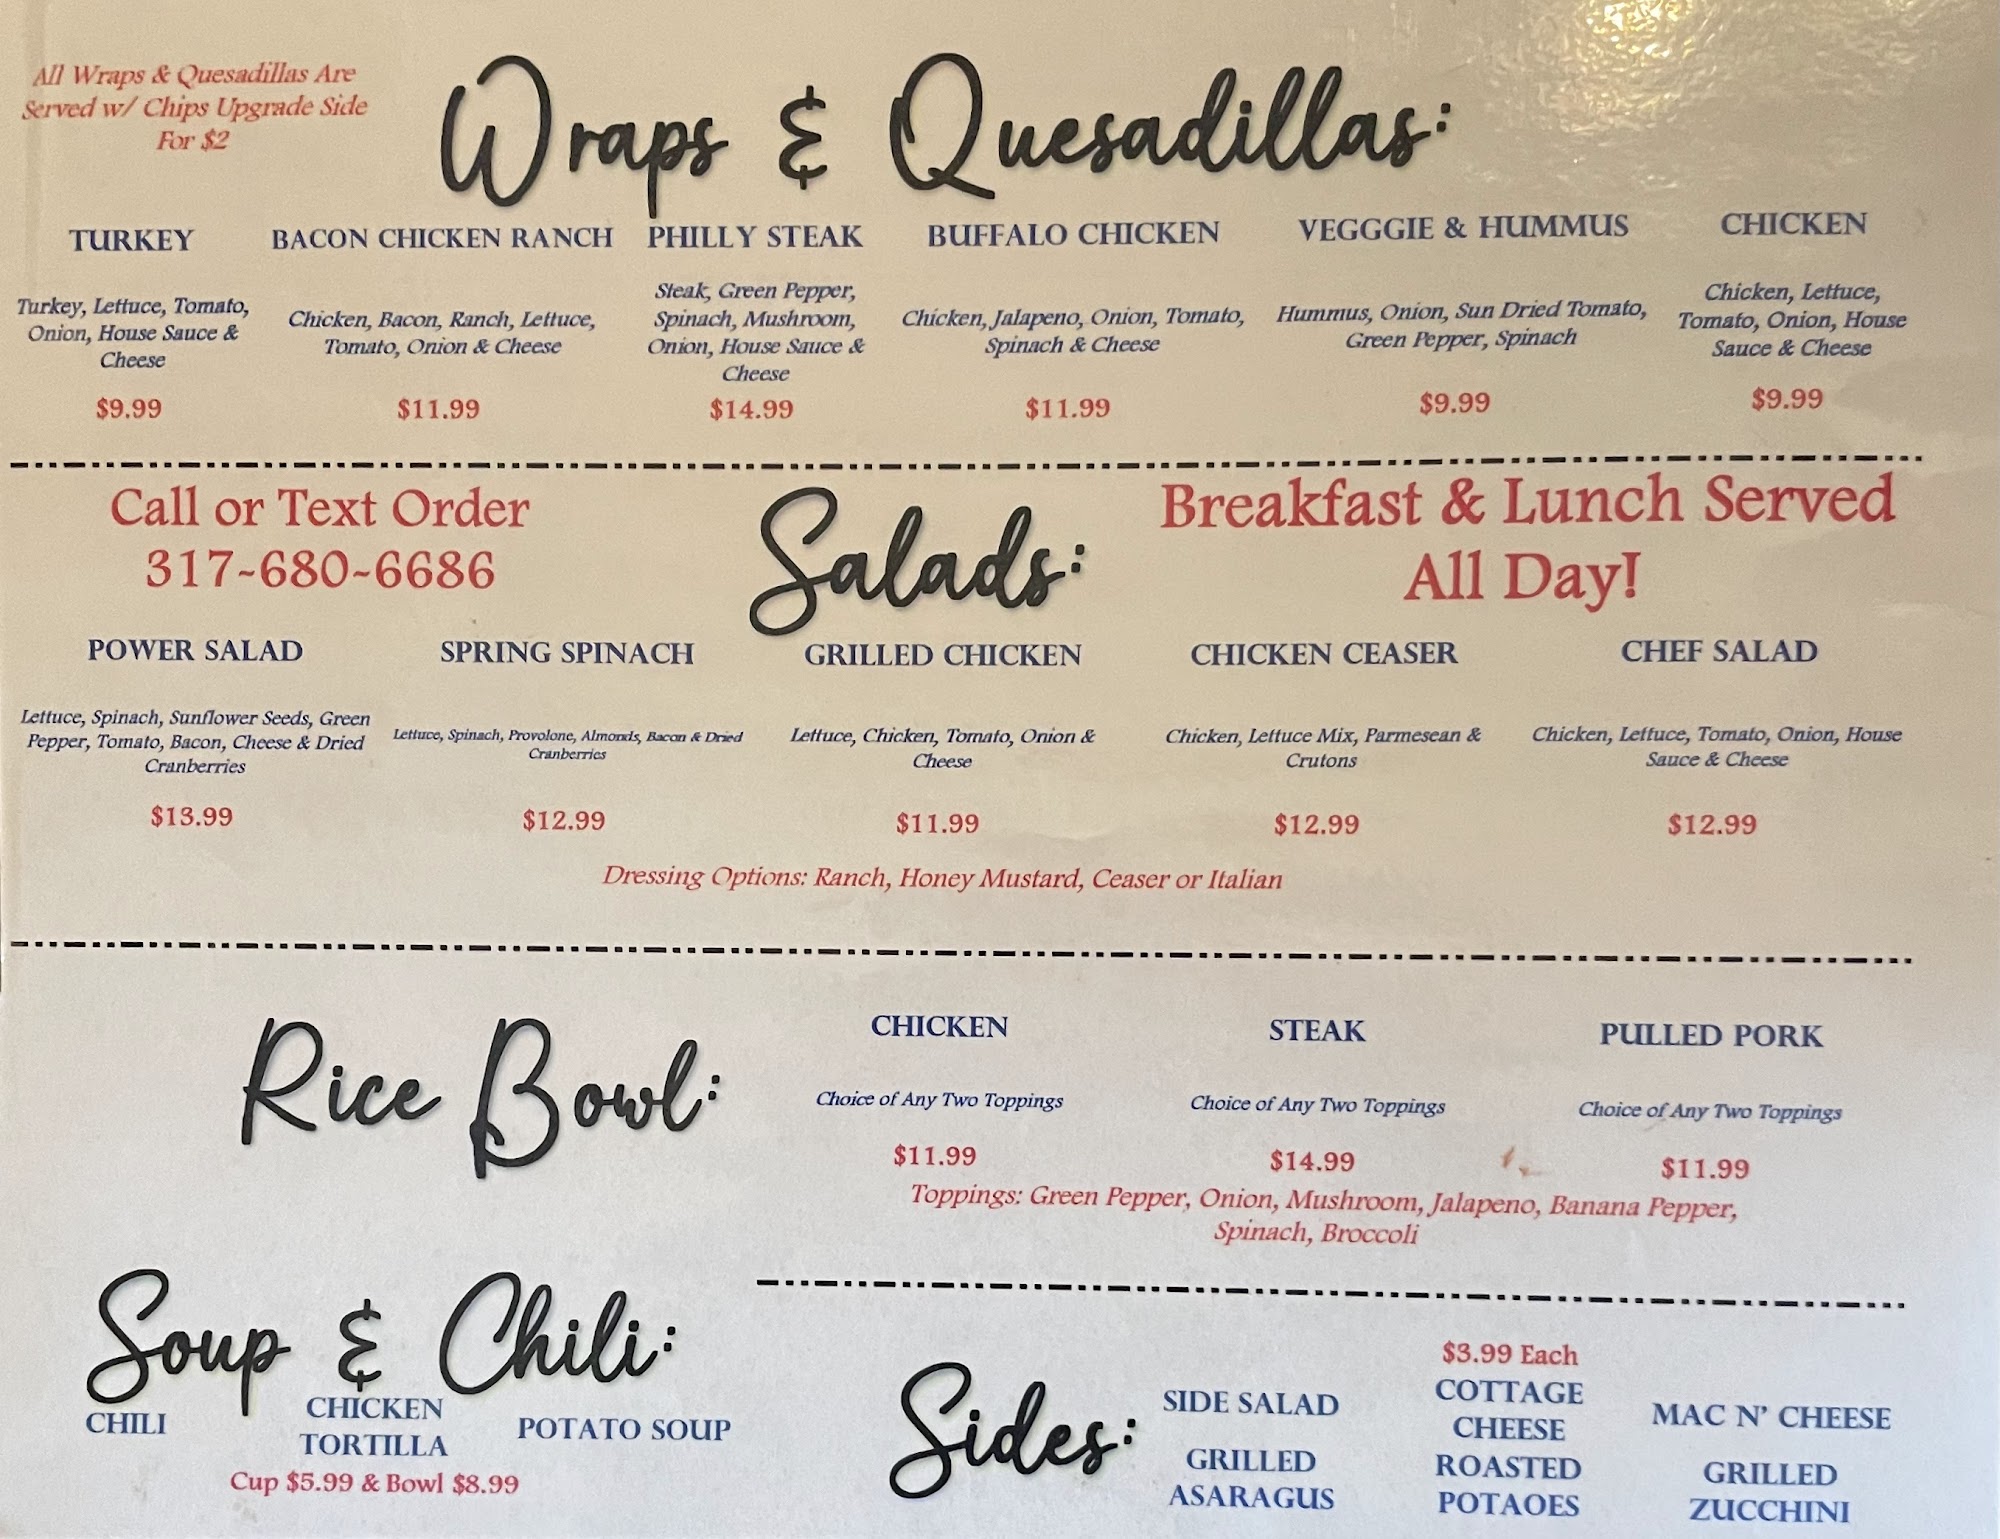 All Wraps & Quesadillas Are
Served w/ Chips Upgrade Side
For $2
Wraps & Quesadillas:
TURKEY
Turkey, Lettuce, Tomato,
Onion, House Sauce &
Cheese
$9.99
BACON CHICKEN RANCH
Chicken, Bacon, Ranch, Lettuce,
Tomato, Onion & Cheese
$11.99
PHILLY STEAK
Steak, Green Pepper,
Spinach, Mushroom,
Onion, House Sauce &
Cheese
$14.99
BUFFALO CHICKEN
Chicken, Jalapeno, Onion, Tomato,
Spinach & Cheese
$11.99
VEGGGIE & HUMMUS
Hummus, Onion, Sun Dried Tomato,
Green Pepper, Spinach
$9.99
CHICKEN
Chicken, Lettuce,
Tomato, Onion, House
Sauce & Cheese
$9.99
Call or Text Order
317-680-6686
Salads:
Breakfast & Lunch Served
All Day!
POWER SALAD
Lettuce, Spinach, Sunflower Seeds, Green
Pepper, Tomato, Bacon, Cheese & Dried
Cranberries
$13.99
SPRING SPINACH
Lettuce, Spinach, Provolone, Almonds, Bacon & Dried
Cranberries
$12.99
GRILLED CHICKEN
Lettuce, Chicken, Tomato, Onion &
Cheese
$11.99
CHICKEN CEASER
Chicken, Lettuce Mix, Parmesean &
Crutons
$12.99
CHEF SALAD
Chicken, Lettuce, Tomato, Onion, House
Sauce & Cheese
$12.99
Dressing Options: Ranch, Honey Mustard, Ceaser or Italian
Rice Bowl:
CHICKEN
Choice of Any Two Toppings
$11.99
STEAK
Choice of Any Two Toppings
$14.99
PULLED PORK
Choice of Any Two Toppings
$11.99
Toppings: Green Pepper, Onion, Mushroom, Jalapeno, Banana Pepper,
Spinach, Broccoli
Soup & Chili:
CHILI
CHICKEN
TORTILLA
POTATO SOUP
Cup $5.99 & Bowl $8.99
Sides:
$3.99 Each
SIDE SALAD
GRILLED
ASARAGUS
COTTAGE
CHEESE
ROASTED
POTAOES
MAC N' CHEESE
GRILLED
ZUCCHINI